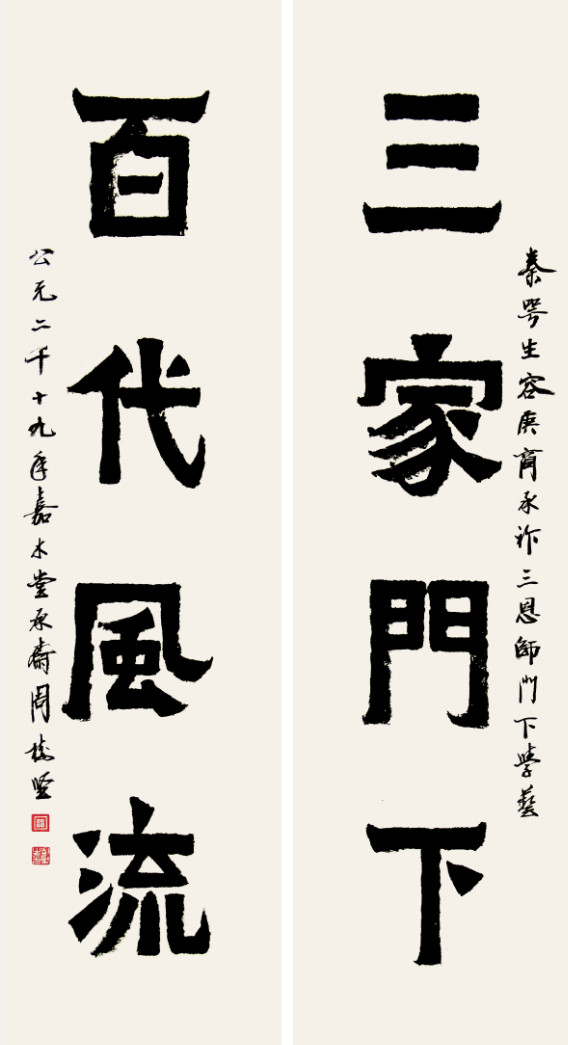 秦咢生容庚商承祚三恩師門下學藝
三家門下
百代風流
公元二千十九年嘉木堂承濤周樹堅